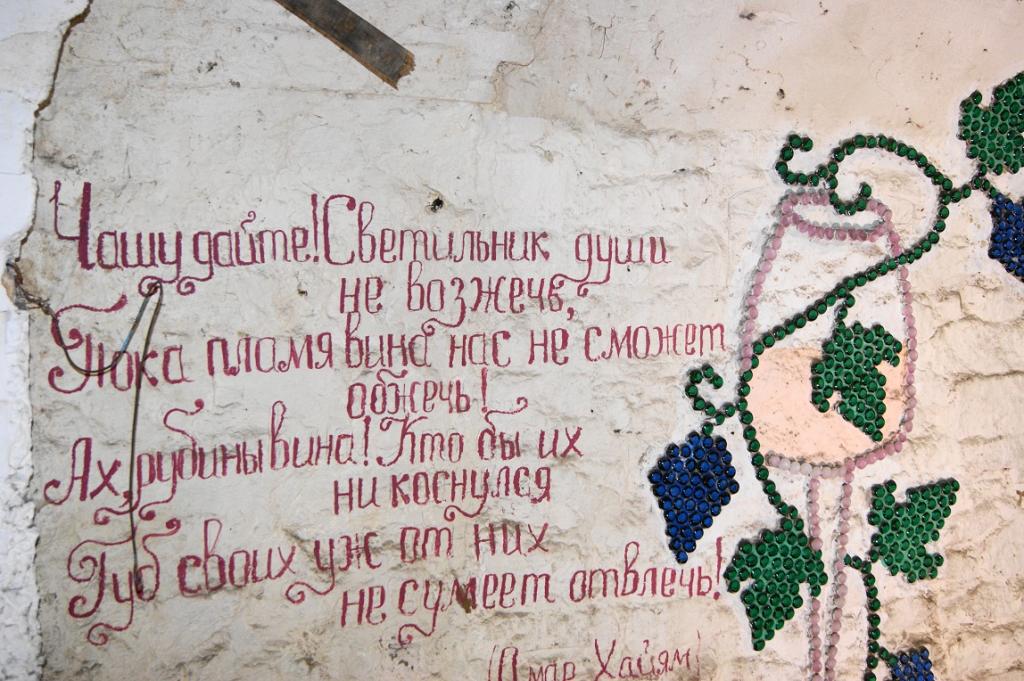 Чашу дайте! Светильник души
не возжечь,
Пока пламя вина нас не сможет
обжечь!
Ах, рубины вина! Кто бы их
ни коснулся
Губ своих уж от них
не сумеет отвлечь!
(Омар Хайям)